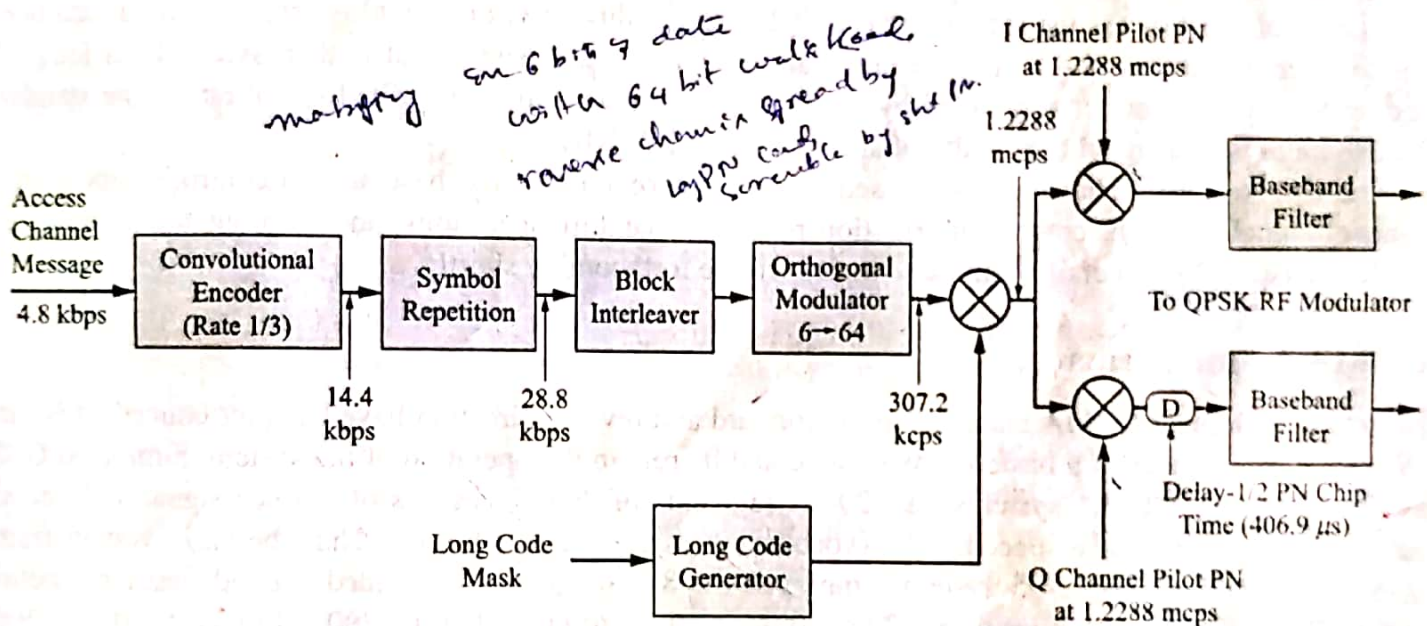 mapping on 6 bit of data
with 64 bit walsh code
reverse chann is spread by
long PN code,
scramble by short PN.
I Channel Pilot PN
at 1.2288 mcps
1.2288
mcps
Access
Channel
Message
4.8 kbps
Convolutional
Encoder
(Rate 1/3)
Symbol
Repetition
Block
Interleaver
Orthogonal
Modulator
6→64
Baseband
Filter
To QPSK RF Modulator
14.4
kbps
28.8
kbps
307.2
kcps
D
Baseband
Filter
Delay-1/2 PN Chip
Time (406.9 μs)
Long Code
Mask
Long Code
Generator
Q Channel Pilot PN
at 1.2288 mcps